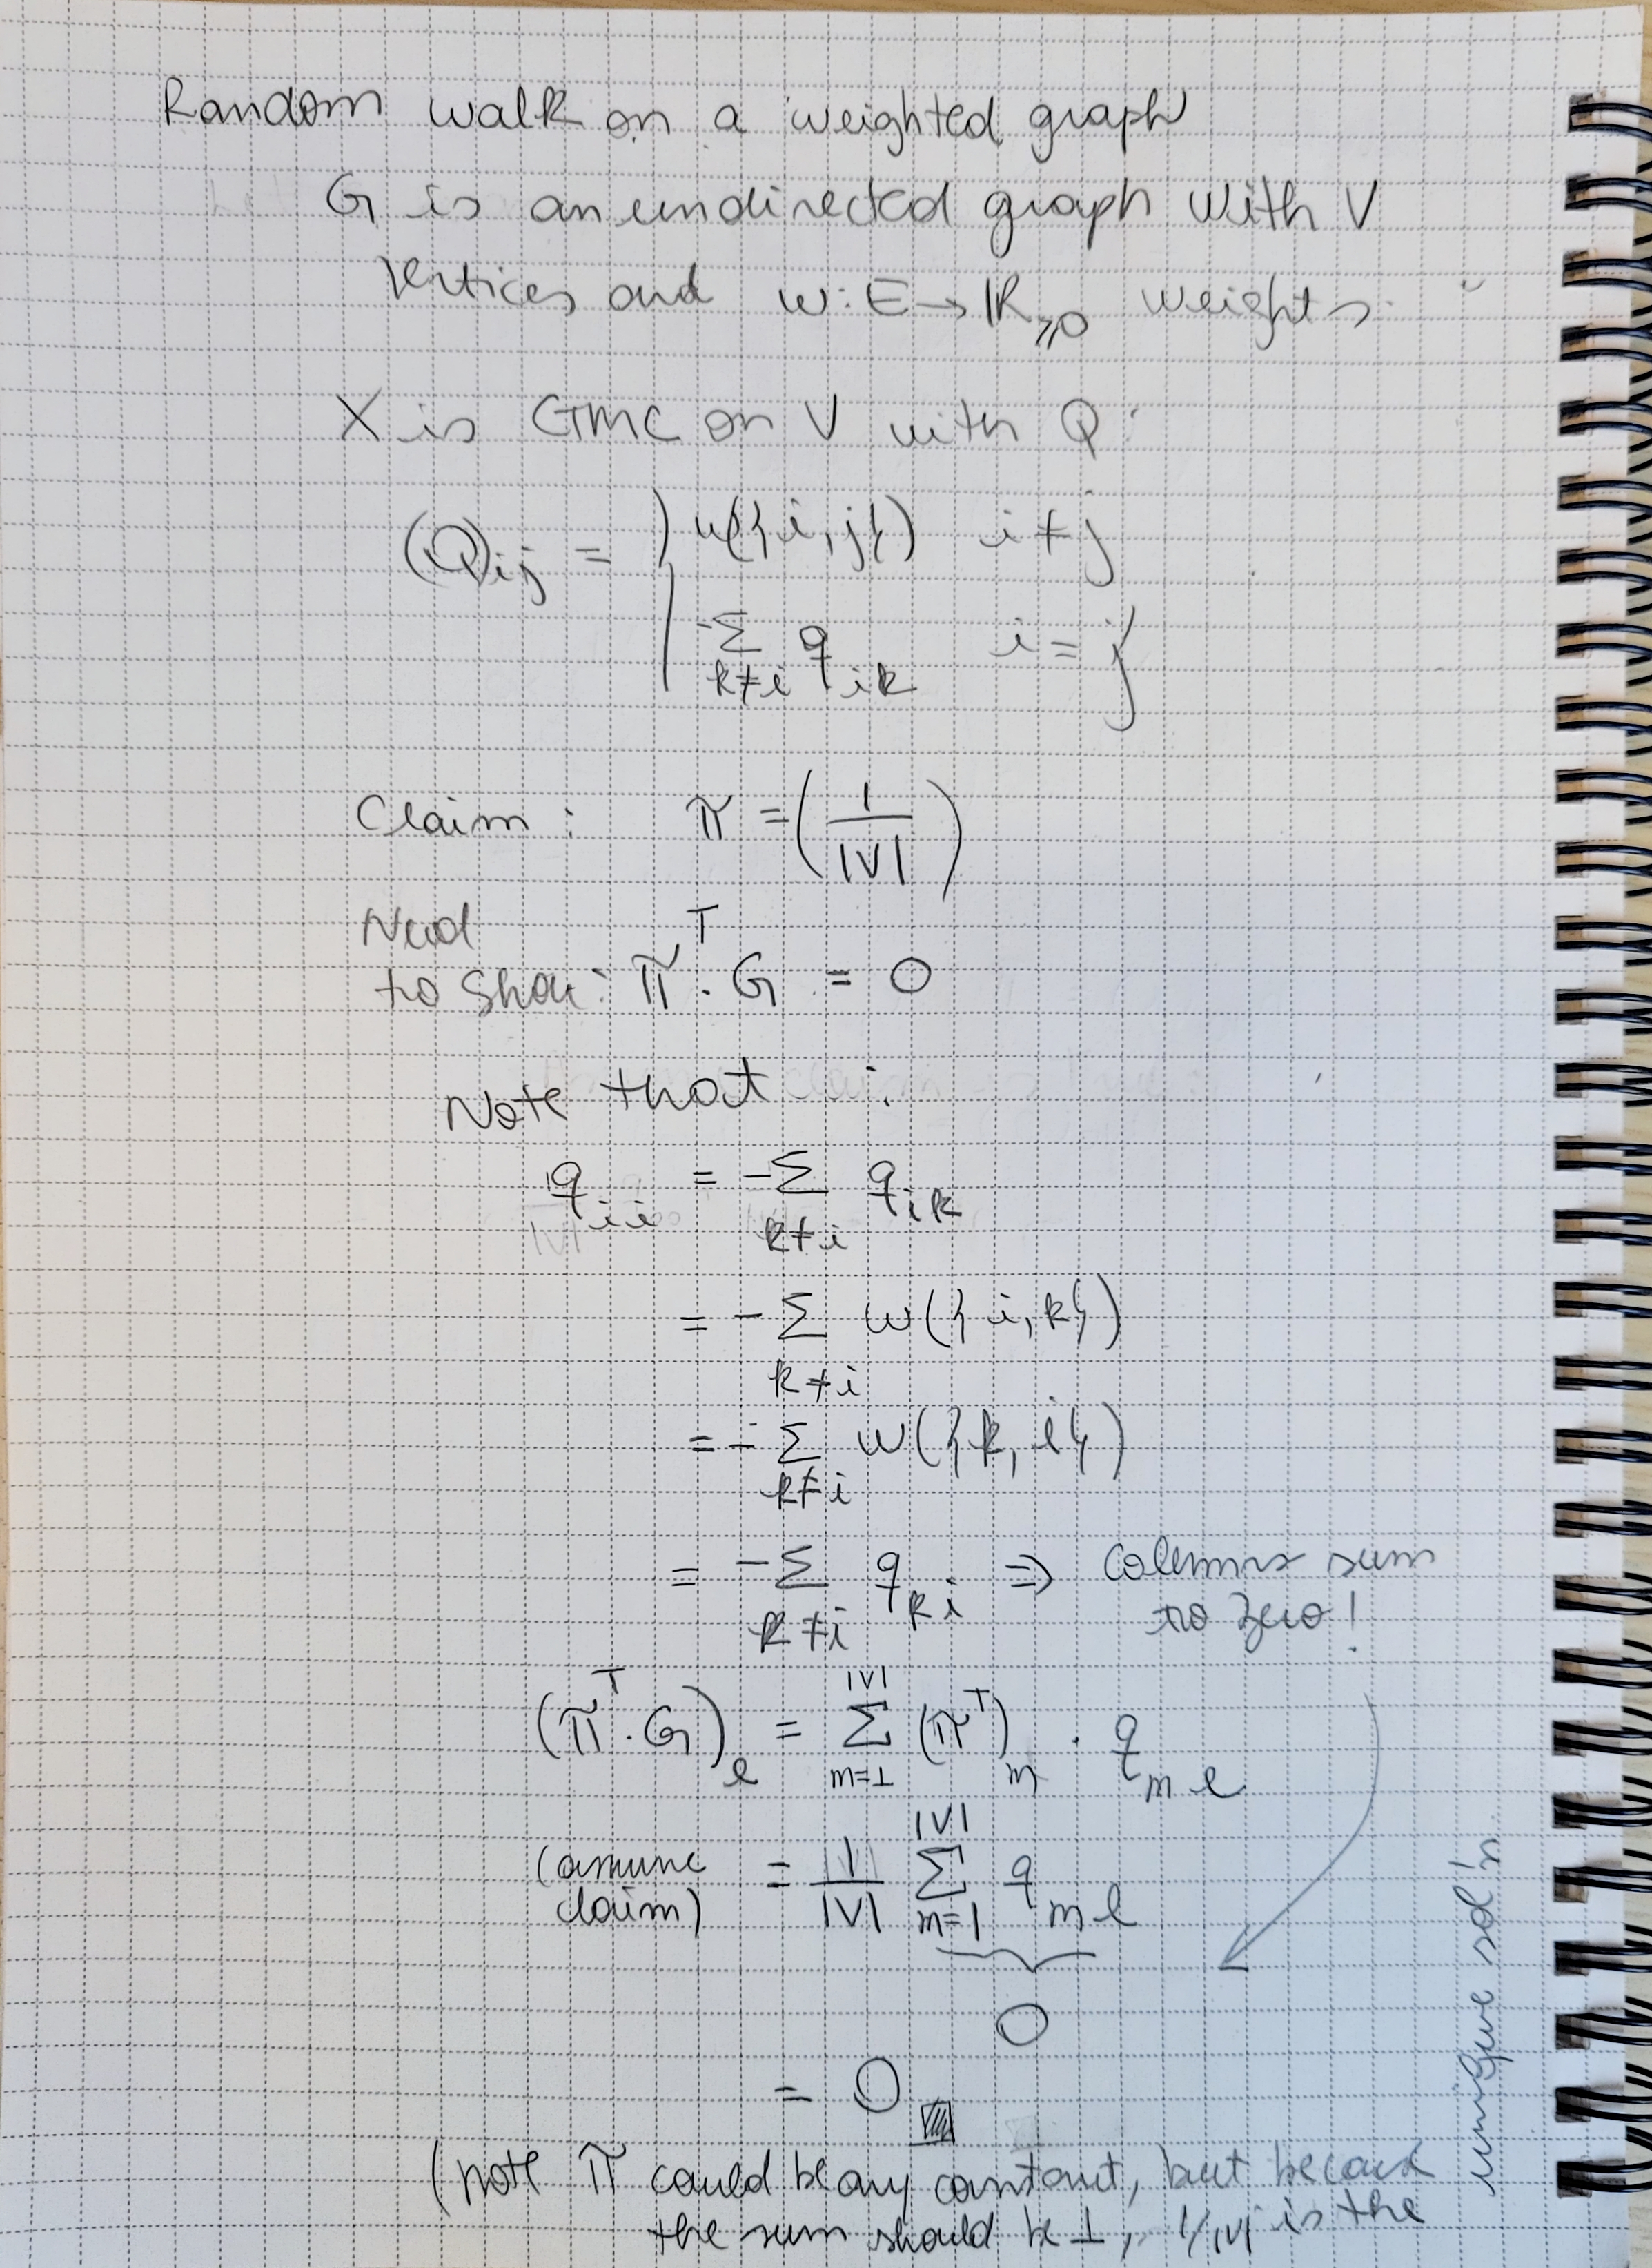 Random walk on a weighted graph
G is an undirected graph with V
vertices and w: E → ℝ≥0 weights.
X is CTMC on V with Q:
(Q)ij = { w({i,j}) i ≠ j
-Σ_{k≠i} q_ik i = j
Claim: π = (1/|V|)
Need
to show: π^T · G = 0
Note that:
q_ii = -Σ_{k≠i} q_ik
= -Σ_{k≠i} w({i,k})
= -Σ_{k≠i} w({k,i})
= -Σ_{k≠i} q_ki ⇒ columns sum
to zero!
(π^T · G)_l = Σ_{m=1}^{|V|} (π^T)_m · q_ml
(assume claim) = 1/|V| Σ_{m=1}^{|V|} q_ml
0
= 0
(note π could be any constant, but because
the sum should be 1, 1/|V| is the
unique sol'n